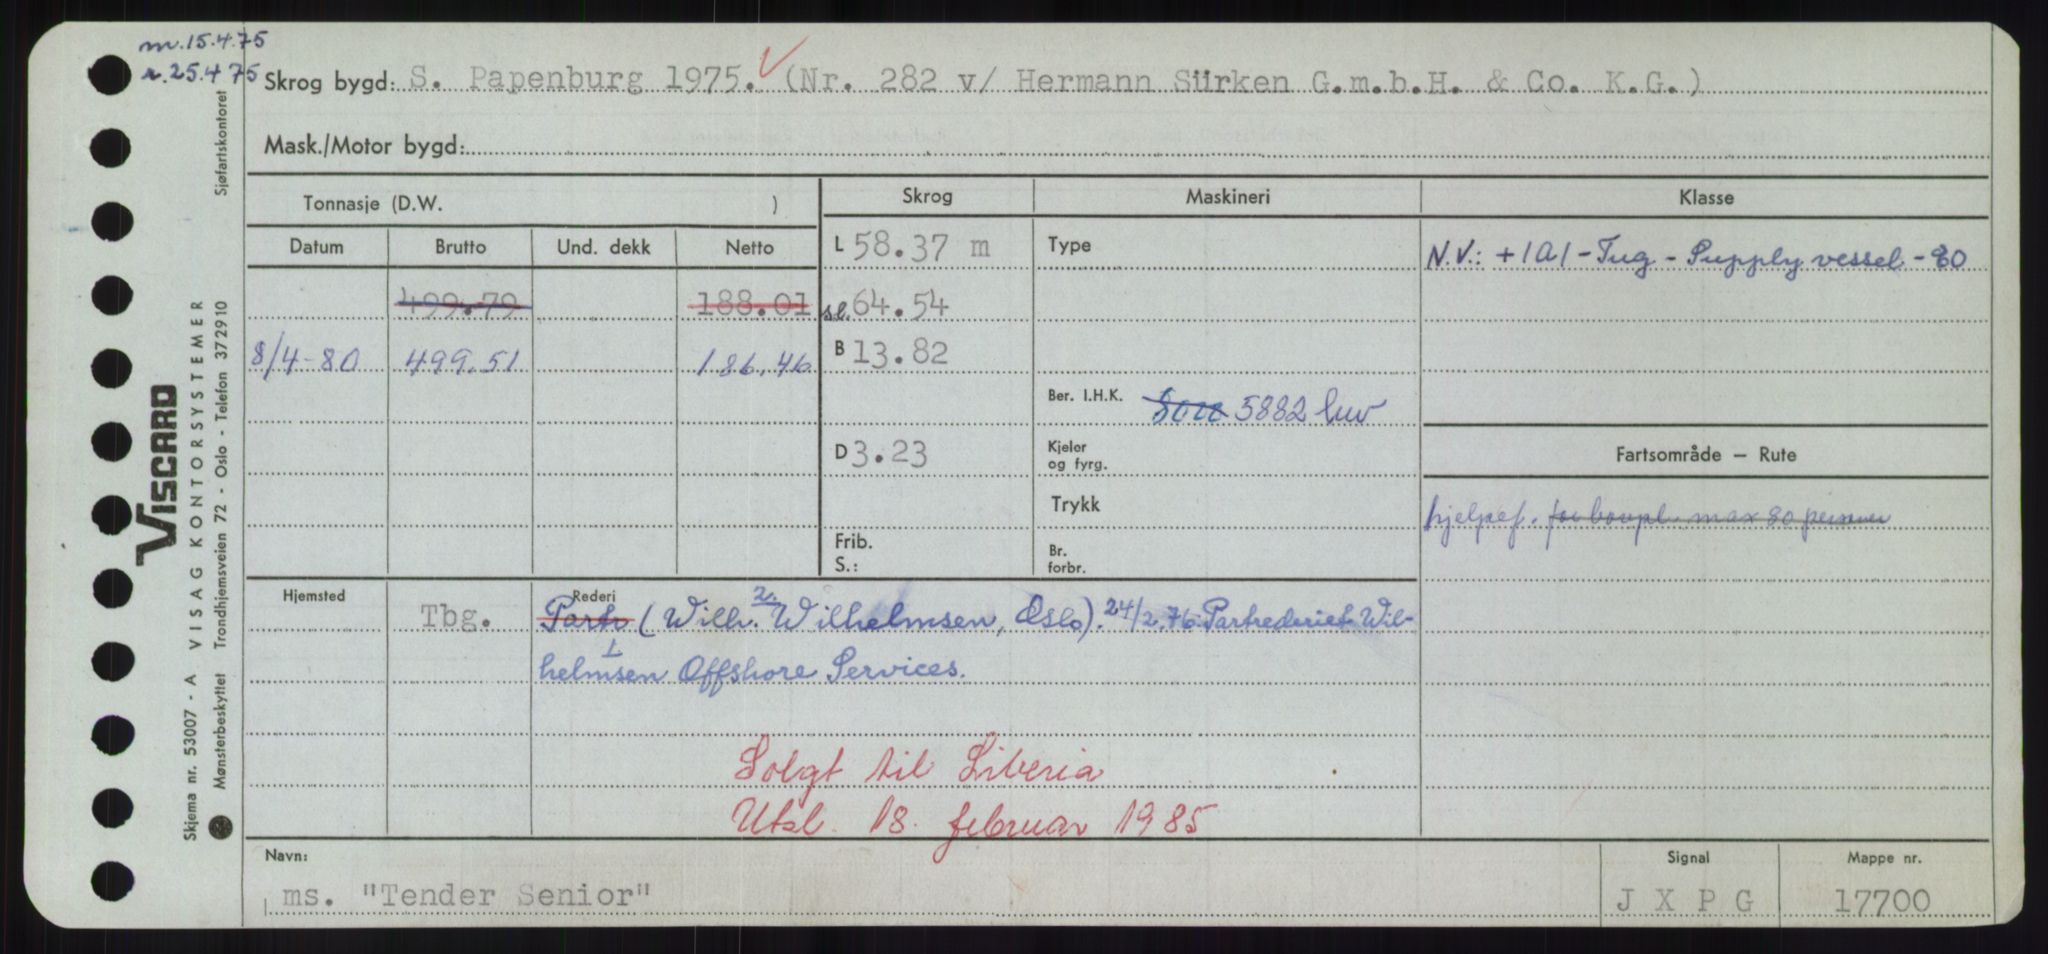 m.15.4.75
r.25.4 75
Skrog bygd: S. Papenburg 1975. (Nr. 282 v/ Hermann Sürken G.m.b.H. & Co. K.G.)
Mask./Motor bygd:
Tonnasje (D.W. )
Skrog
Maskineri
Klasse
Datum Brutto Und. dekk Netto
L 58.37 m
Type
N.V.: +1A1-Tug-Supply vessel-80
499.79 188.01
sl. 64.54
8/4-80 499.51 186.46
B 13.82
Ber. I.H.K. 5882 luv
D 3.23
Kjeler
og fyrg.
Fartsområde – Rute
Trykk
hjelpef. for max 80 personer
Frib.
S.:
Br.
forbr.
Hjemsted
Rederi
Tbg. Partr (Wilh. 2. Wilhelmsen, Oslo). 24/2.76: Partrederiet Wil-
helmsen Offshore Services.
Solgt til Liberia
Utsl. 18. februar 1985
Navn:
ms. "Tender Senior"
Signal
J X P G
Mappe nr.
17700
Skjema nr. 53007 - A VISAG KONTORSYSTEMER
Mønsterbeskyttet Trondhjemsveien 72 - Oslo - Telefon 372910 Sjøfartskontoret
VISCARD